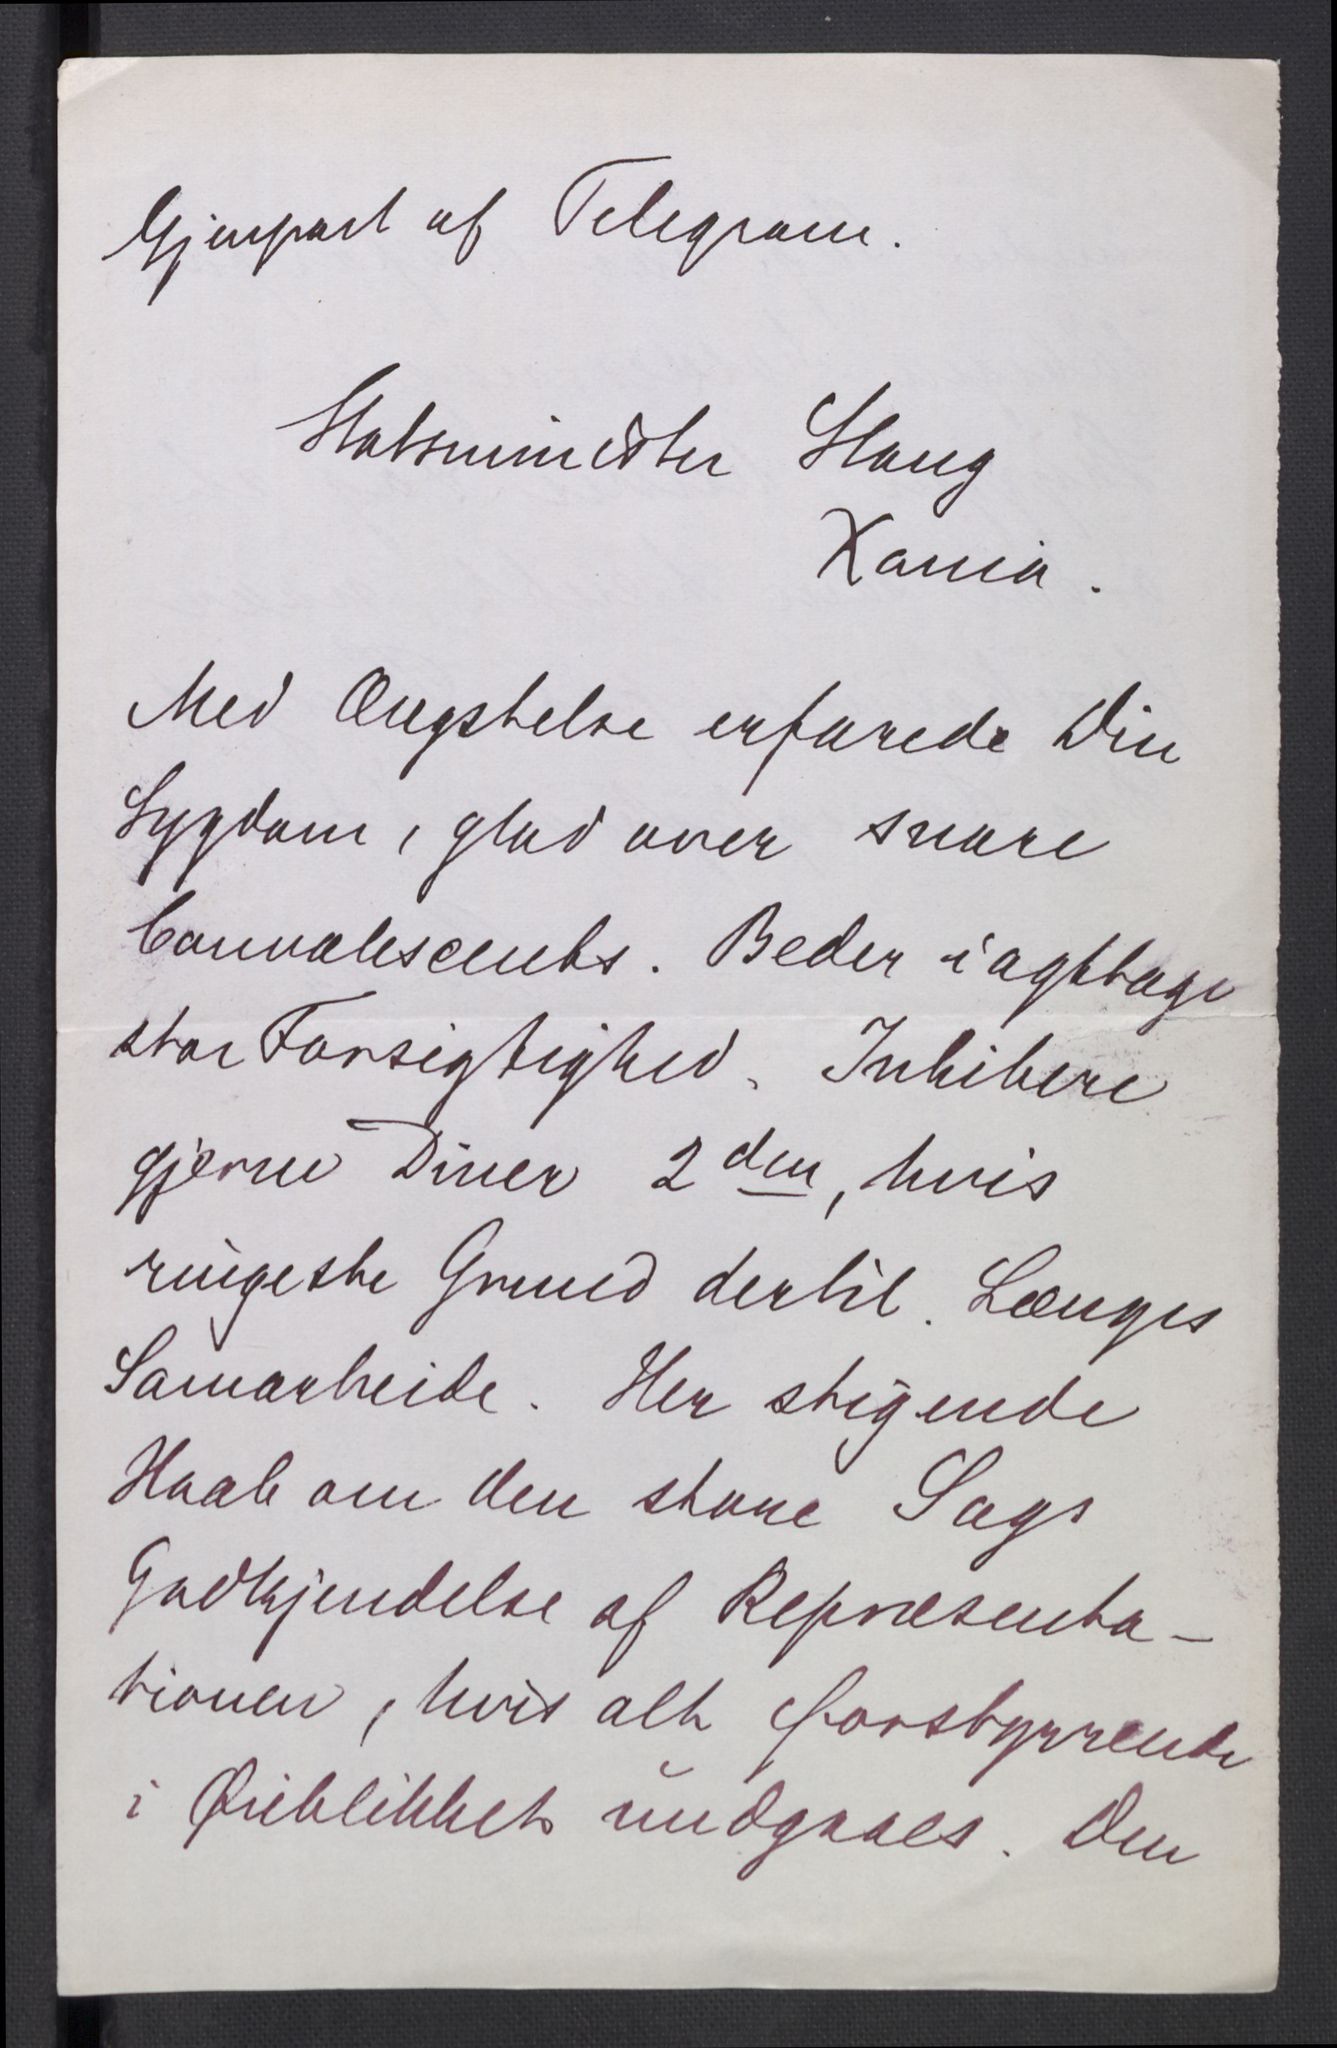 Gjenpart af Telegram.
Statsminister Stang
Xania.
Med Ængstelse erfarede Din
Sygdom, glad over snare
Convalescents. Beder iagttage
stor Forsigtighed. Inhibere
gjerne Diner 2den, hvis
ringeste Grund dertil. Længes
Samarbeide. Her stigende
Haab om den store Sags
Godkjendelse af Repræsenta-
tionen, hvis alt forstyrrende
i Øieblikket undgaaes. Den